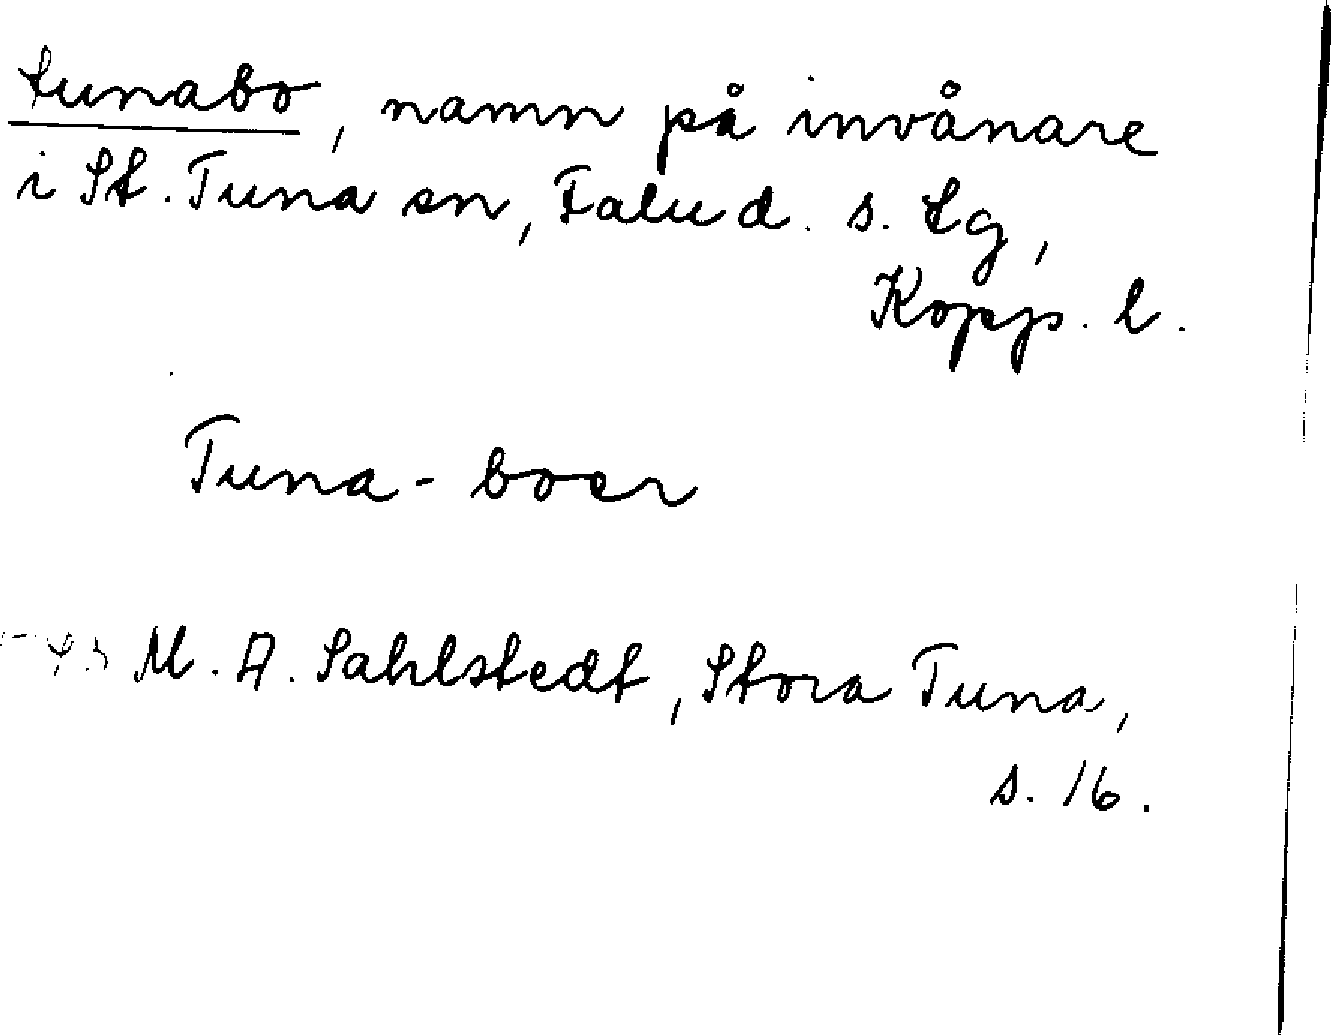 tunabo, namn på invånare
i St. Tuna sn, Falu d. s. tg,
Kopp. l.
Tuna-boer
M. A. Sahlstedt, Stora Tuna,
s. 16.